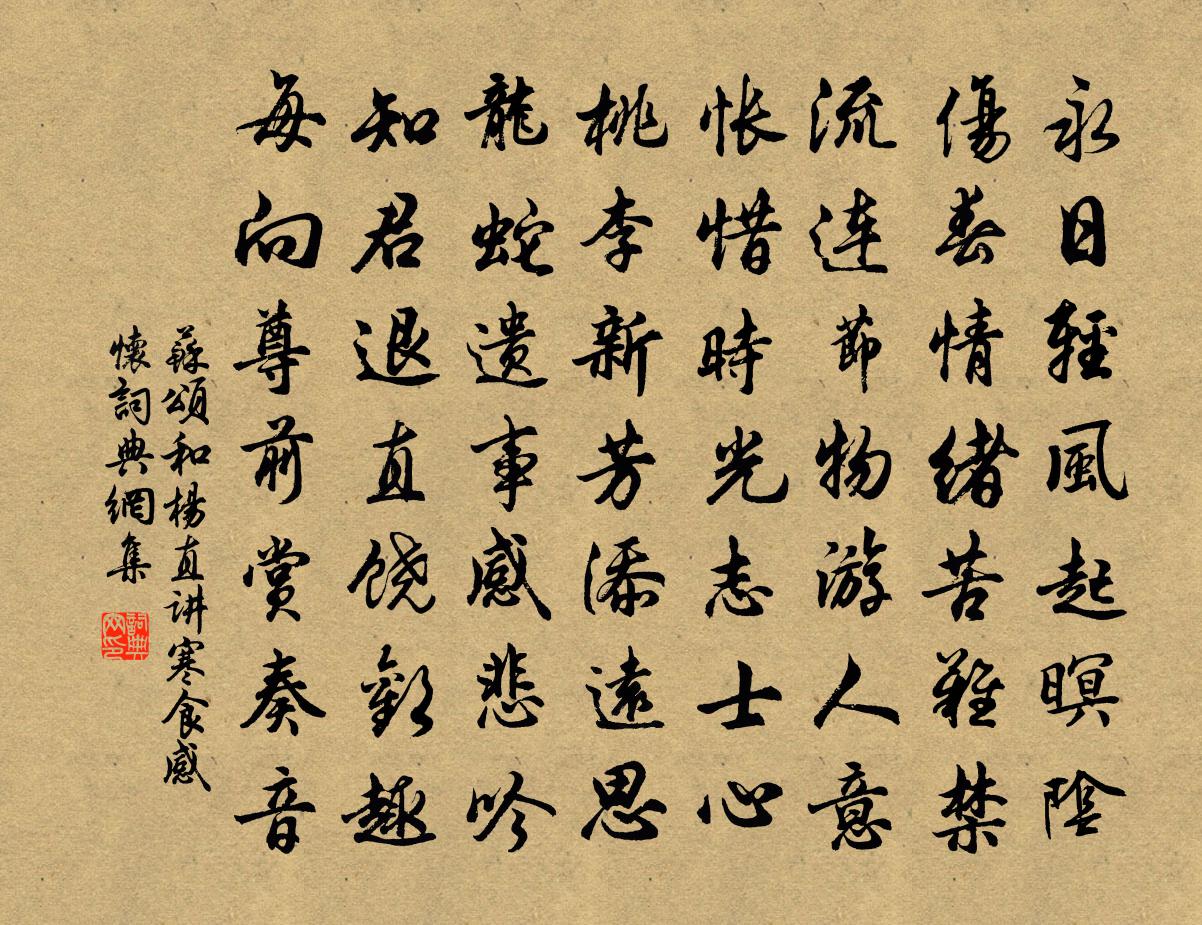 永日輕風起暝陰
傷春情緒苦難禁
流連節物游人意
悵惜時光志士心
桃李新芳添遠思
龍蛇遺事感悲吟
知君退直饒歡趣
每向尊前賞奏音
蘇頌和楊直讲寒食感
懷詞典網集
詞典
网印